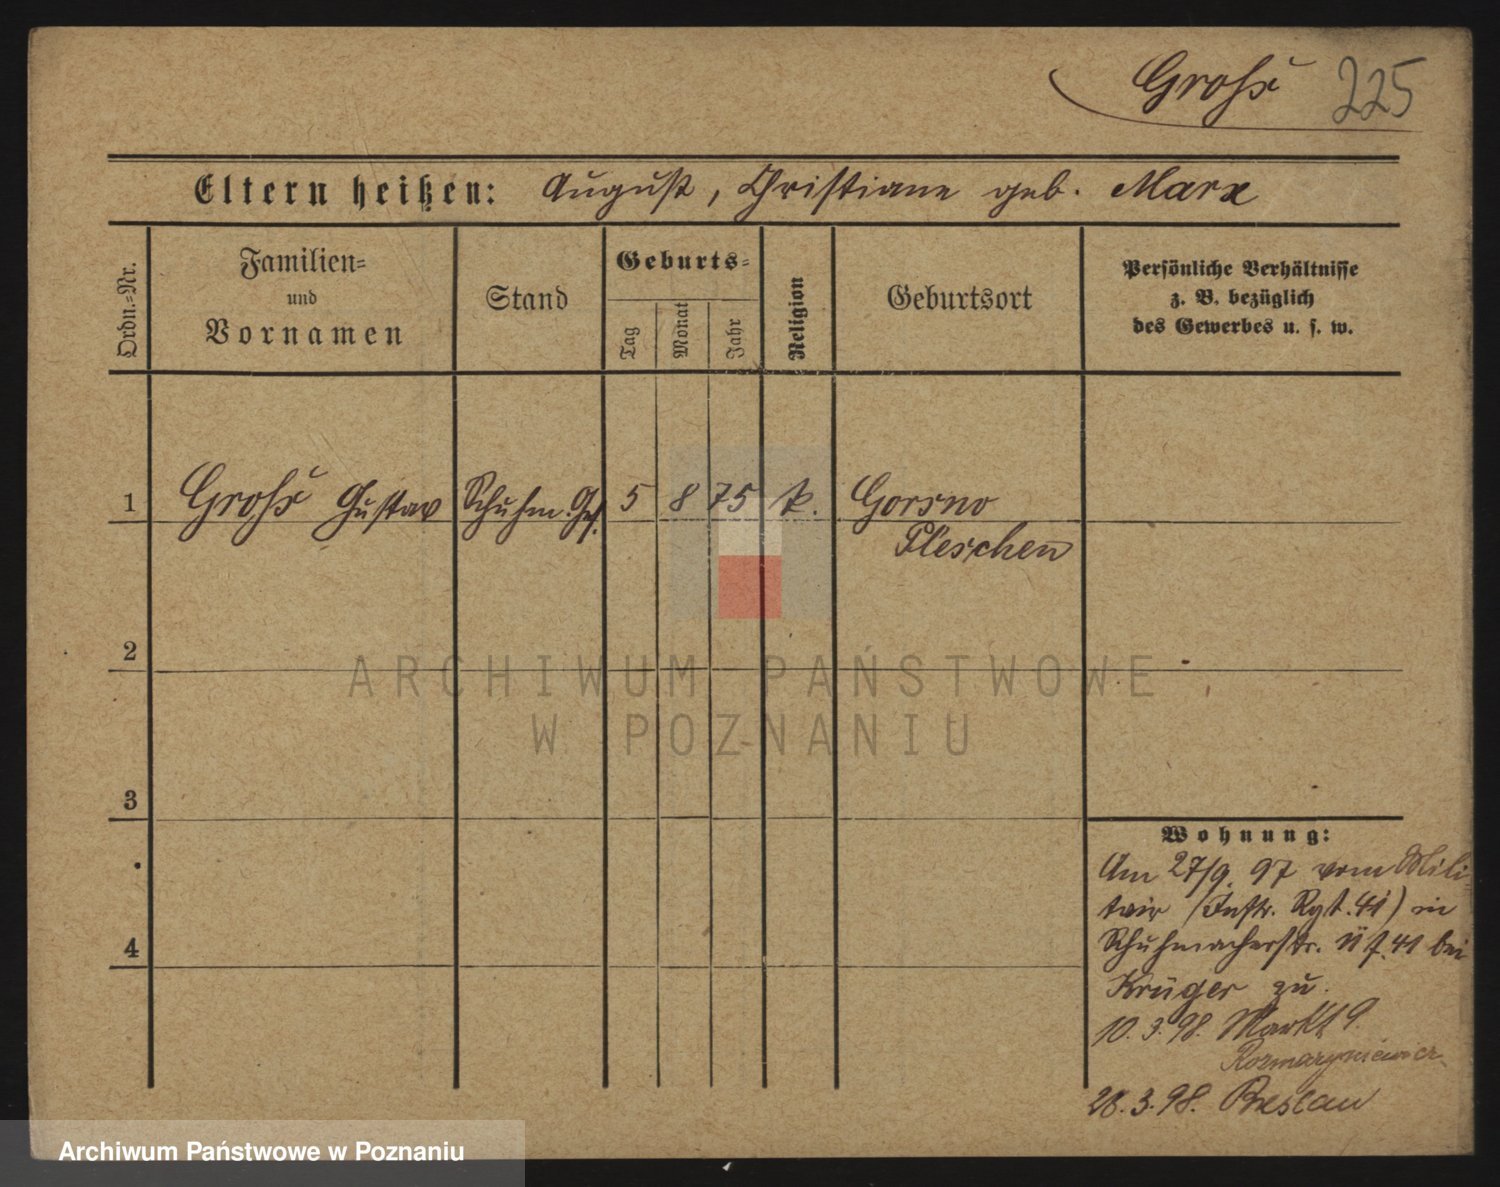 Grohs 225
Eltern heißen: August, Christiane geb. Marx
Ordn.=Nr.
Familien=
und
Vornamen
Stand
Geburts=
Tag
Monat
Jahr
Religion
Geburtsort
Persönliche Verhältnisse
z. B. bezüglich
des Gewerbes u. s. w.
1 Grohs Gustav Schuhm. Ges. 5 8 75 k. Gorsno
Pleschen
2
3
4
Wohnung:
Am 27/9. 97 vom Mili
tair (Inftr. Rgt. 41) in
Schuhmacherstr. 41 bei
Krüger zu.
10. 3. 98. Markt 9
Rozmarynowicz
28. 3. 98. Breslau
ARCHIWUM PAŃSTWOWE
W POZNANIU
Archiwum Państwowe w Poznaniu